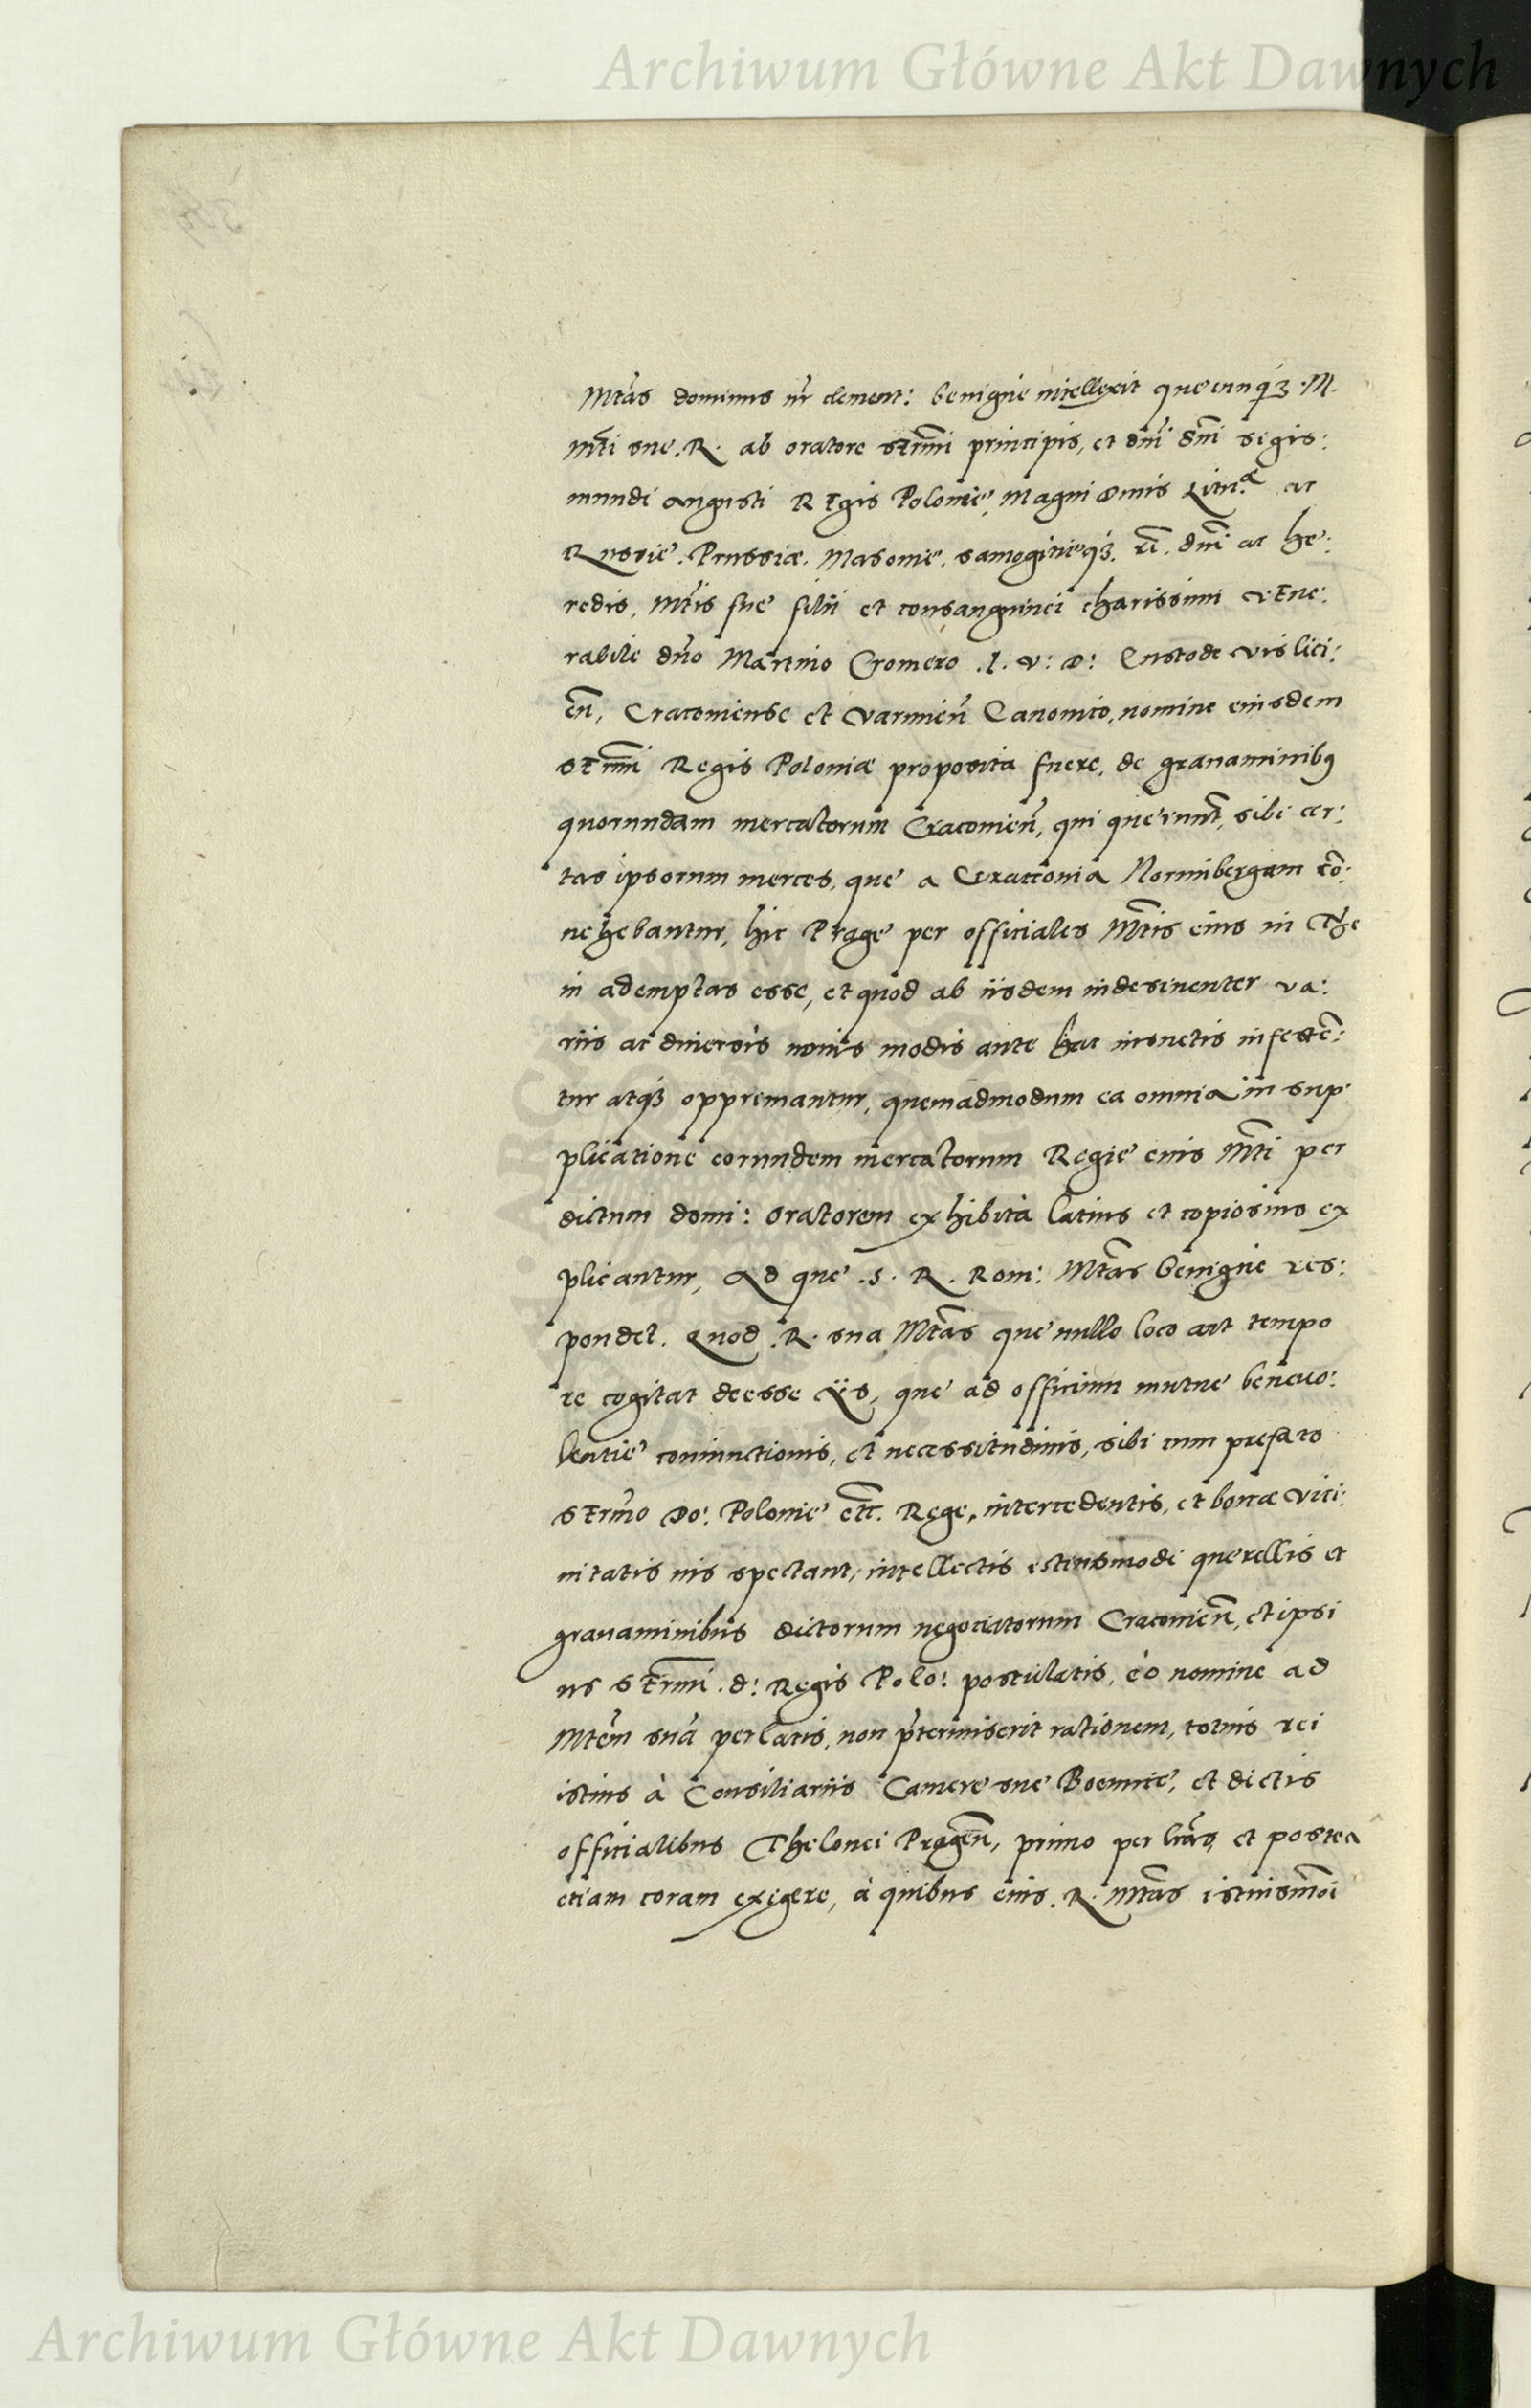 Archiwum Główne Akt Dawnych
Mtãs dominus nr̃ clement: benigne intellexit que cunq3 M.
Mti sue. R. ab oratore serm̃i principis, et dni dni sigis:
mundi Augusti Regis Polonie, Magni Ducis Litua ac
Russie. Prussiæ. Masouie. samogitieq3. rc̃. dni ac he:
redis, Mtis sue filii et consanguinei charissimi vene:
rabile dno Martino Cromero .I. V: D: Custode vislici:
eñ, Cracouiense et varmieñ Canonico, nomine eiusdem
serm̃i Regis Poloniæ proposita fuere, de grauaminibus
quorundam mercatorum Cracouieñ, qui queruñt, sibi cer:
tas ipsorum merces, que a Craccouia Norimbergam cõ:
uehebantur, hic Prage per officiales Mtis eius in The
in ademptas esse, et quod ab iisdem indesinenter va:
riis ac diuersis nouis modis ante hac insuetis infestẽ:
tur atq3 oppremantur, quemadmodum ea omnia in sup
plicatione eorundem mercatorum Regie eius Mti per
dictum domi: oratorem exhibita latius et copiosius ex
plicantur, Ad que .S. R. Rom: Mtãs benigne res:
pondet. Quod .R. sua Mtãs que nullo loco aut tempo
re cogitat deesse iis, que ad officium mutue beneuo:
lentie coniunctionis, et necessitudinis, sibi cum prefato
sermõ Do: Polonie etc̃. Rege, intercedentis, et bonæ vici:
nitatis ius spectant, intellectis estiusmodi querellis et
grauaminibus dictorum negociatorum Cracouieñ, et ipsi
us sermĩ .d: Regis Polo: postulatis, eo nomine ad
Mtẽm suã perlatis, non p̃termiserit rationem, totius rei
istius à Consiliariis Camere sue Boemie, et dictis
officialibus Thelonei Prageñ, primo per lrãs, et postea
etiam coram exigere, à quibus eius. R. Mtãs istiusmõi
Archiwum Główne Akt Dawnych